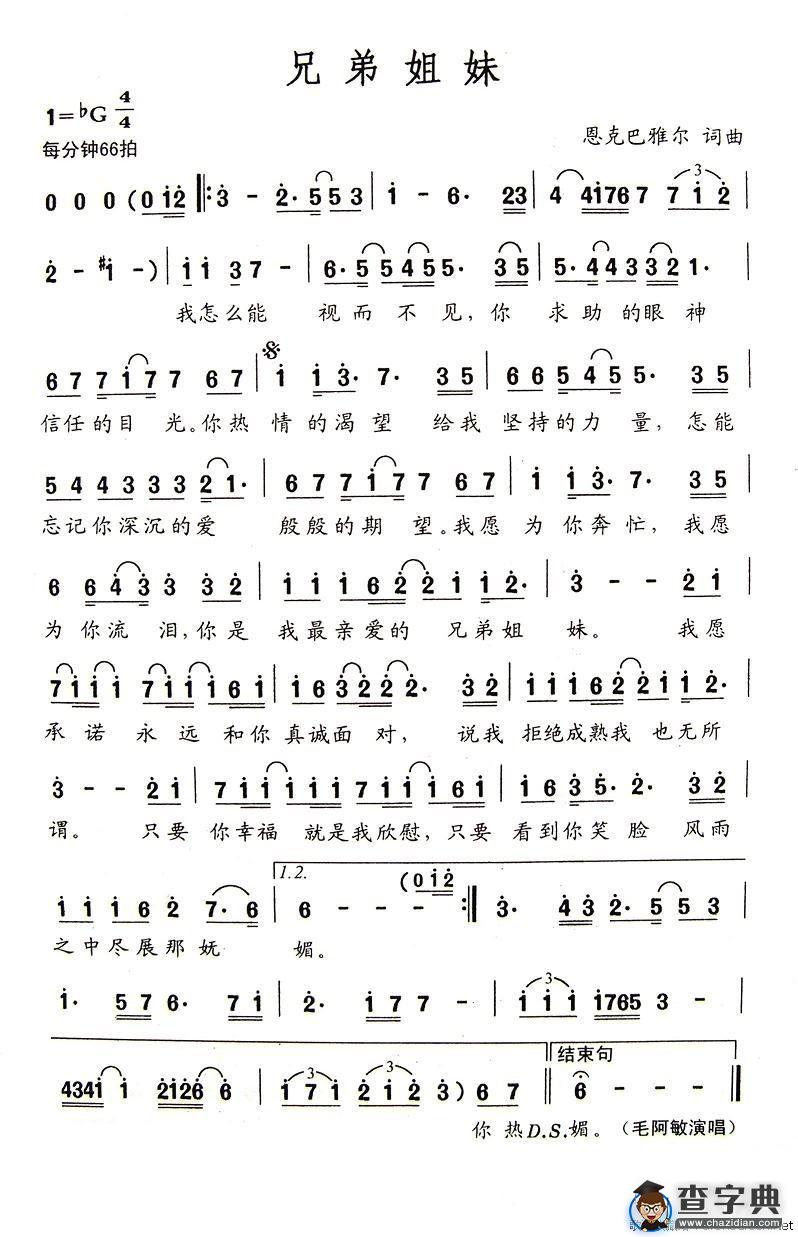 兄弟姐妹
1=♭G 4/4
恩克巴雅尔 词曲
每分钟66拍
0 0 0 (0 i̇2̇ ‖: 3̇ - 2̇· 5 5 3 | i̇ - 6· 2 3 | 4 4i̇76 7 7 i̇ 2̇ |
2̇ - #i̇ - ) | i̇ i̇ 3̇ 7 - | 6· 5 5 4 5 5· 3 5 | 5· 4 4 3 3 2 1· |
我怎么能 视而不见,你 求助的眼神
6 7 7 i̇ 7 7 6 7 | i̇ i̇ 3̇· 7· 3 5 | 6 6 5 4 5 5· 3 5 |
信任的目 光。你热 情的渴望 给我 坚持的力 量,怎能
5 4 4 3 3 3 2 1· | 6 7 7 i̇ 7 7 6 7 | i̇ i̇ 3̇· 7· 3 5 |
忘记你深沉的爱 殷殷的期 望。我愿 为你奔忙,我愿
6 6 4̇ 3̇ 3̇ 3̇ 2̇ | i̇ i̇ i̇ 6 2̇ 2̇ i̇ i̇ i̇ 2̇· | 3̇ - - 2̇ i̇ |
为你流 泪,你是 我最亲爱的 兄弟姐 妹。 我愿
7 i̇ i̇ i̇ 7 i̇ i̇ i̇ 6 i̇ | i̇ 6 3̇ 2̇ 2̇ 2̇· 3̇ 2̇ | i̇ i̇ i̇ 6 2̇ 2̇ i̇ i̇ 2̇· |
承诺 永远 和你 真诚面 对, 说我 拒绝成熟我 也无所
3̇ - - 2̇ i̇ | 7 i̇ i̇ i̇ i̇ i̇ 7 i̇ i̇ i̇ 6 i̇ | i̇ 6 3̇ 5· 2̇· 3̇ 2̇ |
谓。 只要 你幸福 就是我欣慰,只要 看到你笑脸 风雨
1.2.
i̇ i̇ i̇ 6 2̇ 7· 6 | 6 - - (0 i̇ 2̇ :‖ 3̇· 4̇ 3̇ 2̇· 5 5 3 |
之中尽展那妩 媚。
i̇· 5 7 6· 7 i̇ | 2̇· i̇ 7 7 - | i̇ i̇ i̇ i̇765 3 - |
结束句
4341̇ i̇ 2̇i̇2̇6 6 | i̇ 7 i̇ 2̇ i̇ 2̇ 3̇ ) 6 7 ‖ 6 - - - ‖
你 热D.S.媚。(毛阿敏演唱)
查字典
www.chazidian.com